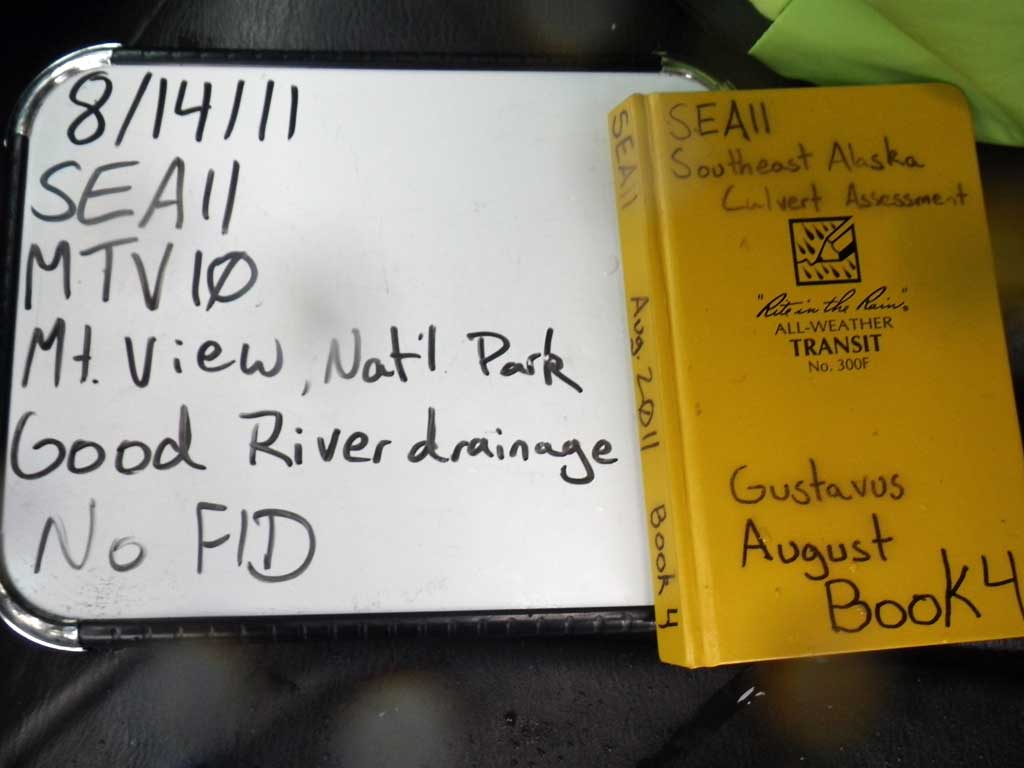 8/14/11
SEA11
MTV10
Mt. View, Nat'l Park
Good River drainage
No FID
SEA11 Aug. 2011 Book 4
SEA11
Southeast Alaska
Culvert Assessment
"Rite in the Rain"®
ALL-WEATHER
TRANSIT
No. 300F
Gustavus
August
Book 4